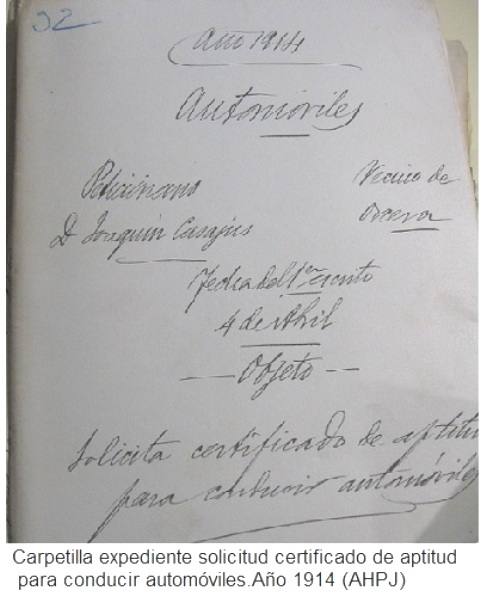 32
Año 1914
Automóviles
Peticionario
D Joaquín Casajús
Vecino de
Orcera
Fecha del 1er escrito
4 de Abril
— Objeto —
Solicita certificado de aptitu
para conducir automóviles
Carpetilla expediente solicitud certificado de aptitud
para conducir automóviles.Año 1914 (AHPJ)